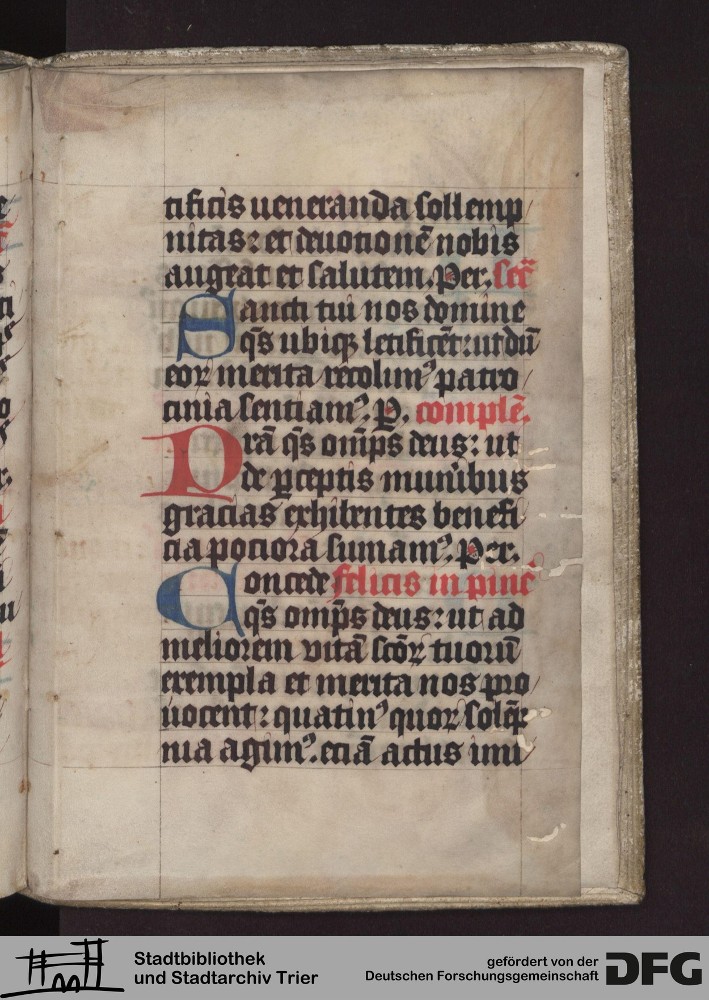 tificis ueneranda sollemp/
nitas: et deuotionē nobis
augeat et salutem. Per. secr̄
Sancti tui nos domine
q̄s ubiqꝫ letificēt: ut dū
eoꝝ merita recolimꝰ patro/
cinia sentiamꝰ. P. complē.
Prā q̄s om̄ps deus: ut
de ꝑceptis muneribus
gracias exhibentes benefi/
cia pociora sumamꝰ. Per.
Concede felicis in pinē
q̄s om̄ps deus: ut ad
meliorem vitā sc̄oꝝ tuorū
exempla et merita nos pro/
uocent: quatinꝰ quoꝝ solēp/
nia agimꝰ. eciā actus imi/
Stadtbibliothek
und Stadtarchiv Trier
gefördert von der
Deutschen Forschungsgemeinschaft
DFG